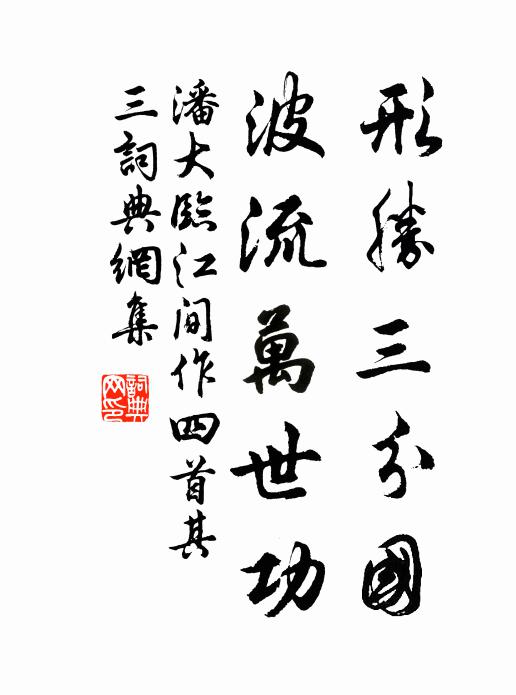 形勝三分國
波流萬世功
潘大臨江間作四首其
三詞典網集
詞典
网印